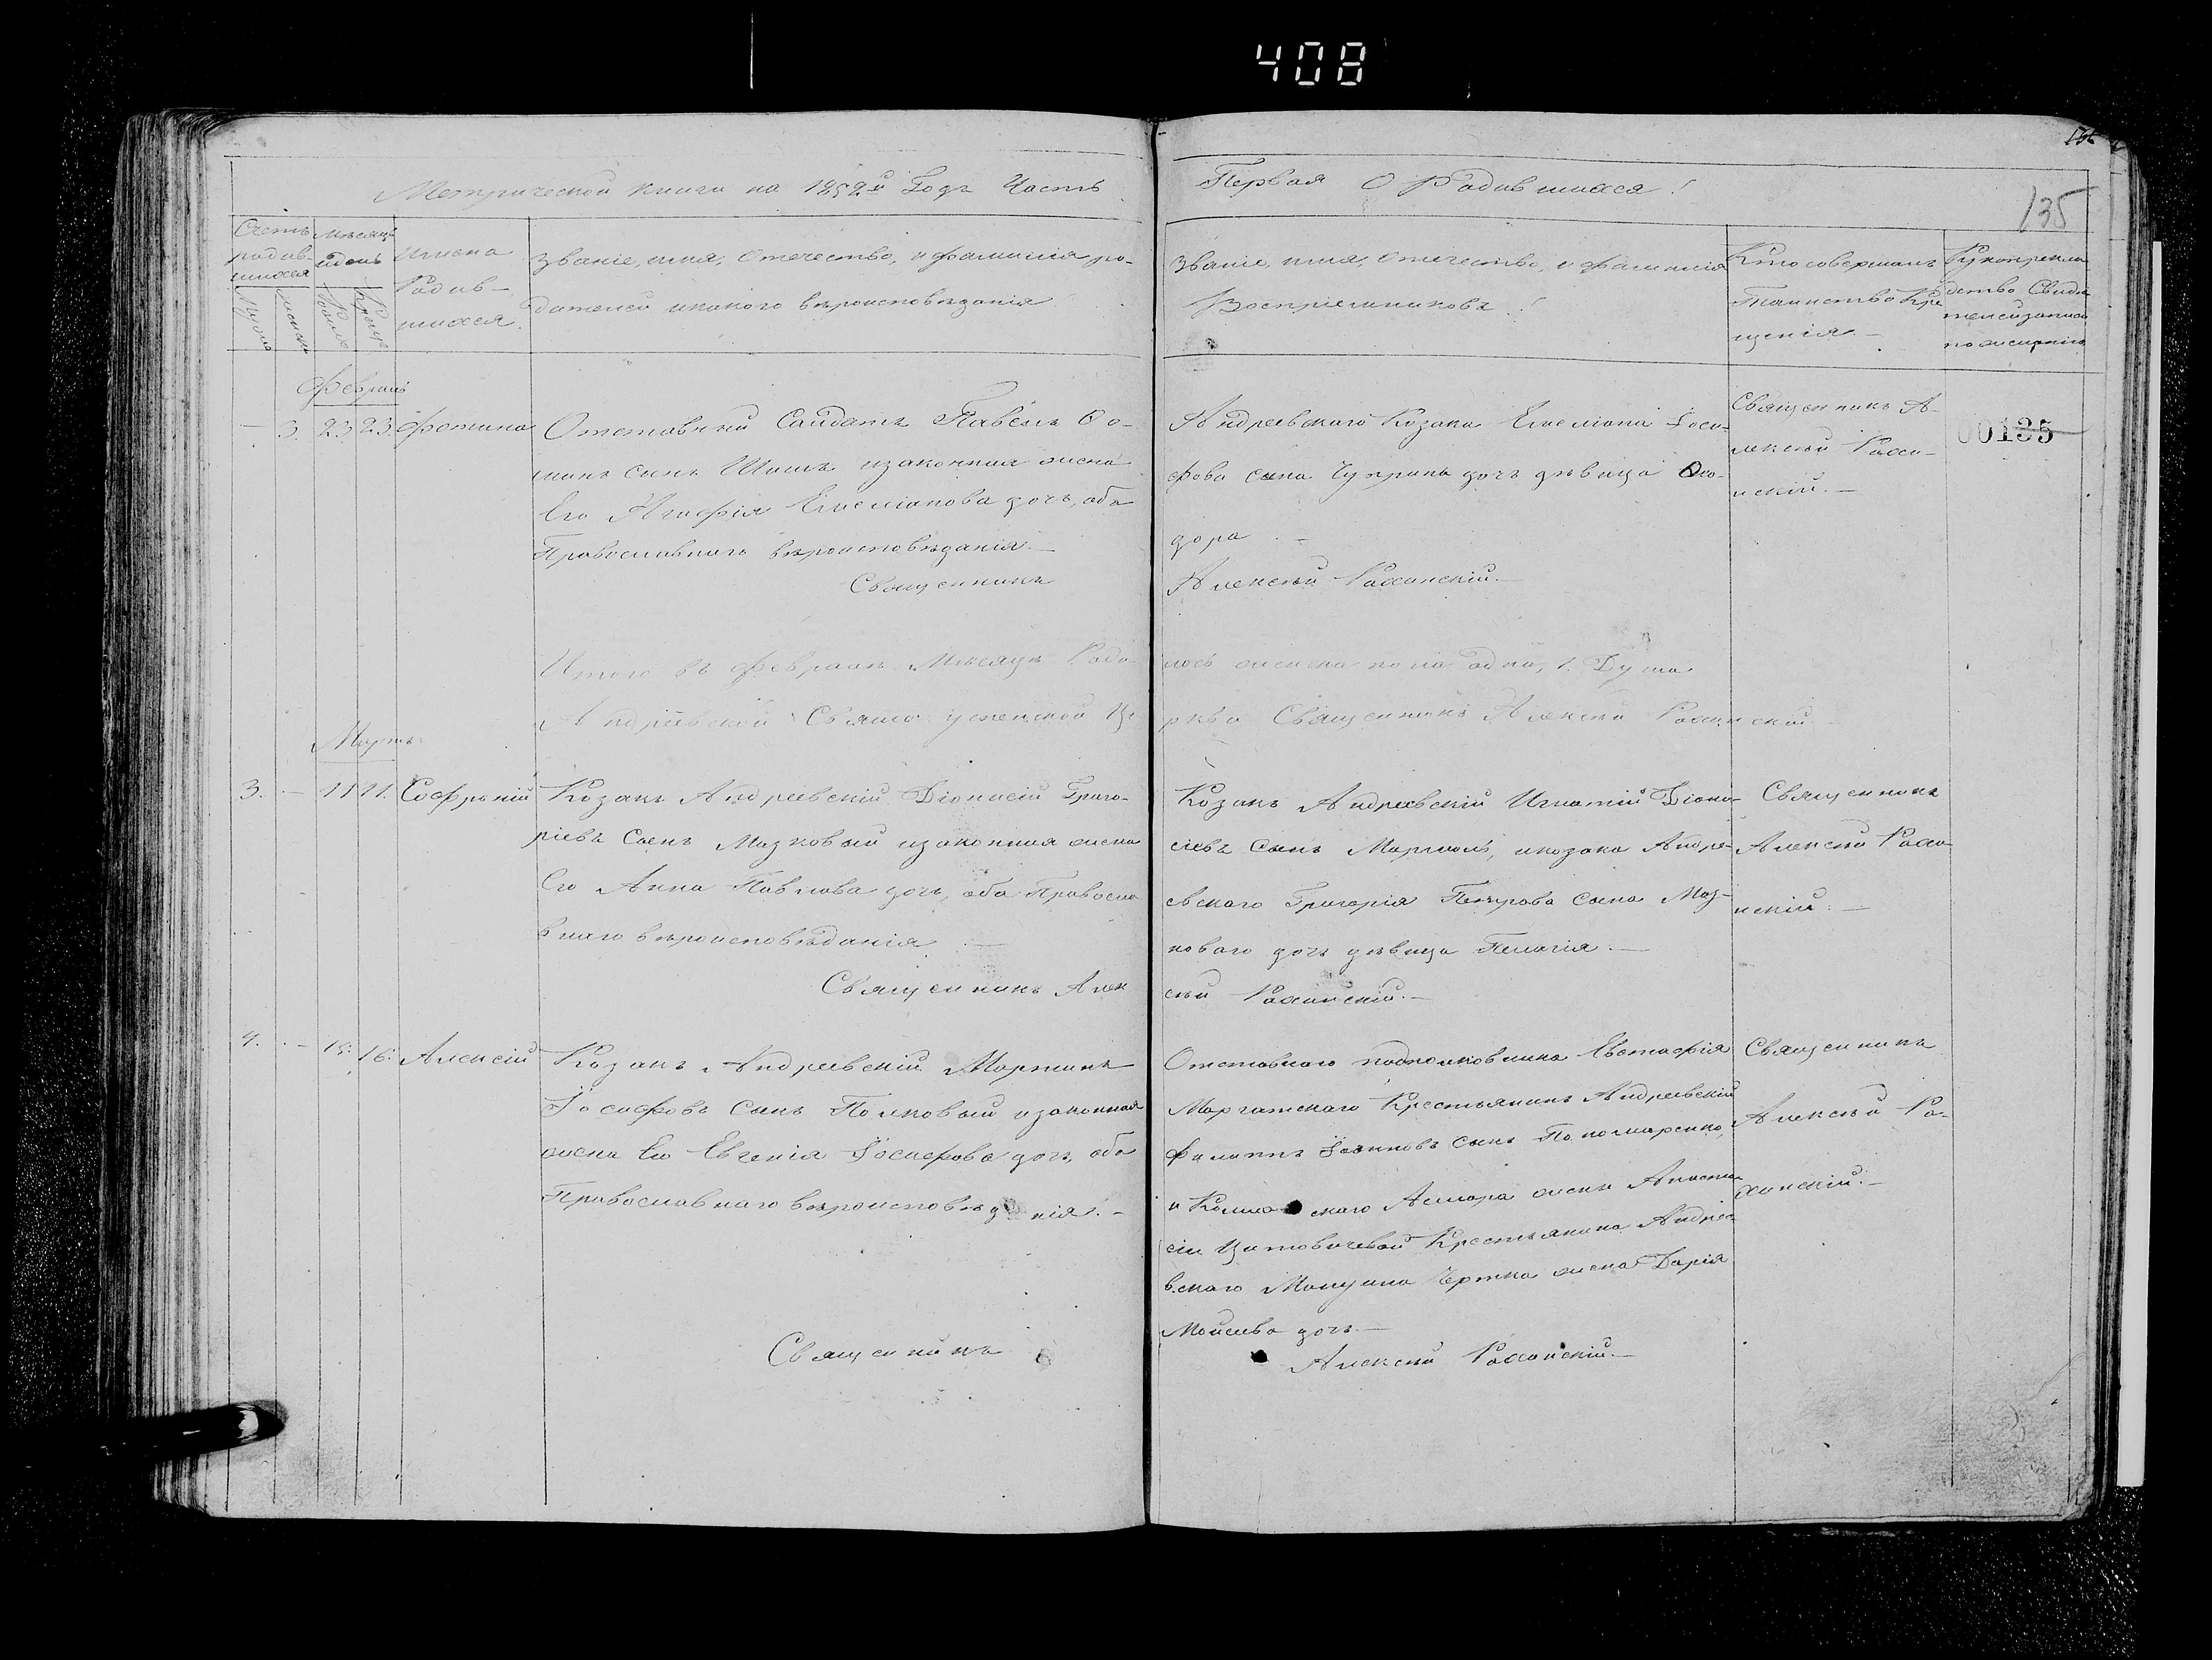 408
135
Метрической книги на 1852й Годъ Часть
Первая О Родившихся
135
Счетъ родив-шихся
Мѣсяцъ и день
Имена Родив-шихся.
Званіе, имя, Отечество, и фамилія ро-
дителей и какого вѣроисповѣданія
Званіе, имя, Отечество, и Фамилія
Воспріемниковъ
Кто совершалъ
Таинство Кре
щенія.
Рукоприкла
дство Свидѣ
телей записи
по желанію
Февраль
— 3. 23. 23. Фотина
Отставный Салдатъ Павелъ Ѳо-
минъ сынъ Шишъ и законная жена
Его Агафія Емеліанова дочь, оба
Православнаго вѣроисповѣданія.—
Священникъ
Андреевскаго Козака Емеліана Іоси-
фова сына Чуприна дочь дѣвица Ѳео-
дора.-
Алексѣй Рахинскій.—
Священникъ А-
лексѣй Рахи-
нскій.—
00135
Итого въ Февралѣ Мѣсяцѣ Роди
лось женска пола одна, 1. Душа
Андреевской Свято успенской Це
ркви Священникъ Алексѣй Рахинскій
Мартъ
3. — 11 11. Софрѣній
Козакъ Андреевскій Діонисій Григо-
ріевъ Сынъ Мазковый и законная жена
Его Анна Павлова дочь, оба Правосла
внаго вѣроисповѣданія.—
Священникъ Алек
Козакъ Андреевскій Игнатій Діони-
сіевъ Сынъ, и козака Андре-
евскаго Григорія Петрова Сына Маз-
коваго дочь дѣвица Пелагія.—
сѣй Рахинскій.—
Священникъ
Алексѣй Рахи-
нскій.—
4. — 15. 16. Алексій
Козакъ Андреевскій Мартинъ
Іосифовъ Сынъ Полковый и законная
жена Его Евгенія Іосифова дочь, оба
Православнаго вѣроисповѣданія.-
Священникъ
Отставнаго подполковника Евстафія
Крестьянинъ Андреевскій
Филиппъ Іоанновъ Сынъ Пономаренко,
и жены Анаста
сіи Крестьянина Андрее
вскаго жена Дарія
Моисеева дочь.—
Алексѣй Рахинскій.—
Священникъ
Алексѣй Ра-
хинскій.—